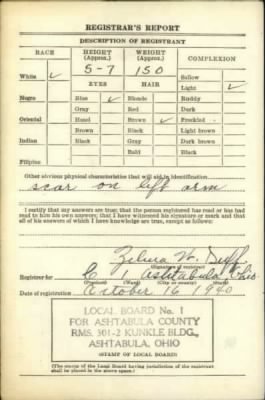 REGISTRAR'S REPORT
DESCRIPTION OF REGISTRANT
RACE HEIGHT (Approx.) WEIGHT (Approx.) COMPLEXION
5-7 150
White ✓ Sallow
EYES HAIR Light ✓
Negro Blue ✓ Blonde Ruddy
Gray Red Dark
Oriental Hazel Brown ✓ Freckled
Brown Black Light brown
Indian Black Gray Dark brown
Bald Black
Filipino
Other obvious physical characteristics that will aid in identification
scar on left arm
I certify that my answers are true; that the person registered has read or has had
read to him his own answers; that I have witnessed his signature or mark and that
all of his answers of which I have knowledge are true, except as follows:
(Signature of registrar)
Registrar for C 1 Ashtabula Ohio
(Precinct) (Ward) (City or county) (State)
Date of registration October 16 1940
LOCAL BOARD No. 1
FOR ASHTABULA COUNTY
RMS. 301-2 KUNKLE BLDG.,
ASHTABULA, OHIO
(STAMP OF LOCAL BOARD)
(The stamp of the Local Board having jurisdiction of the registrant
shall be placed in the above space.)